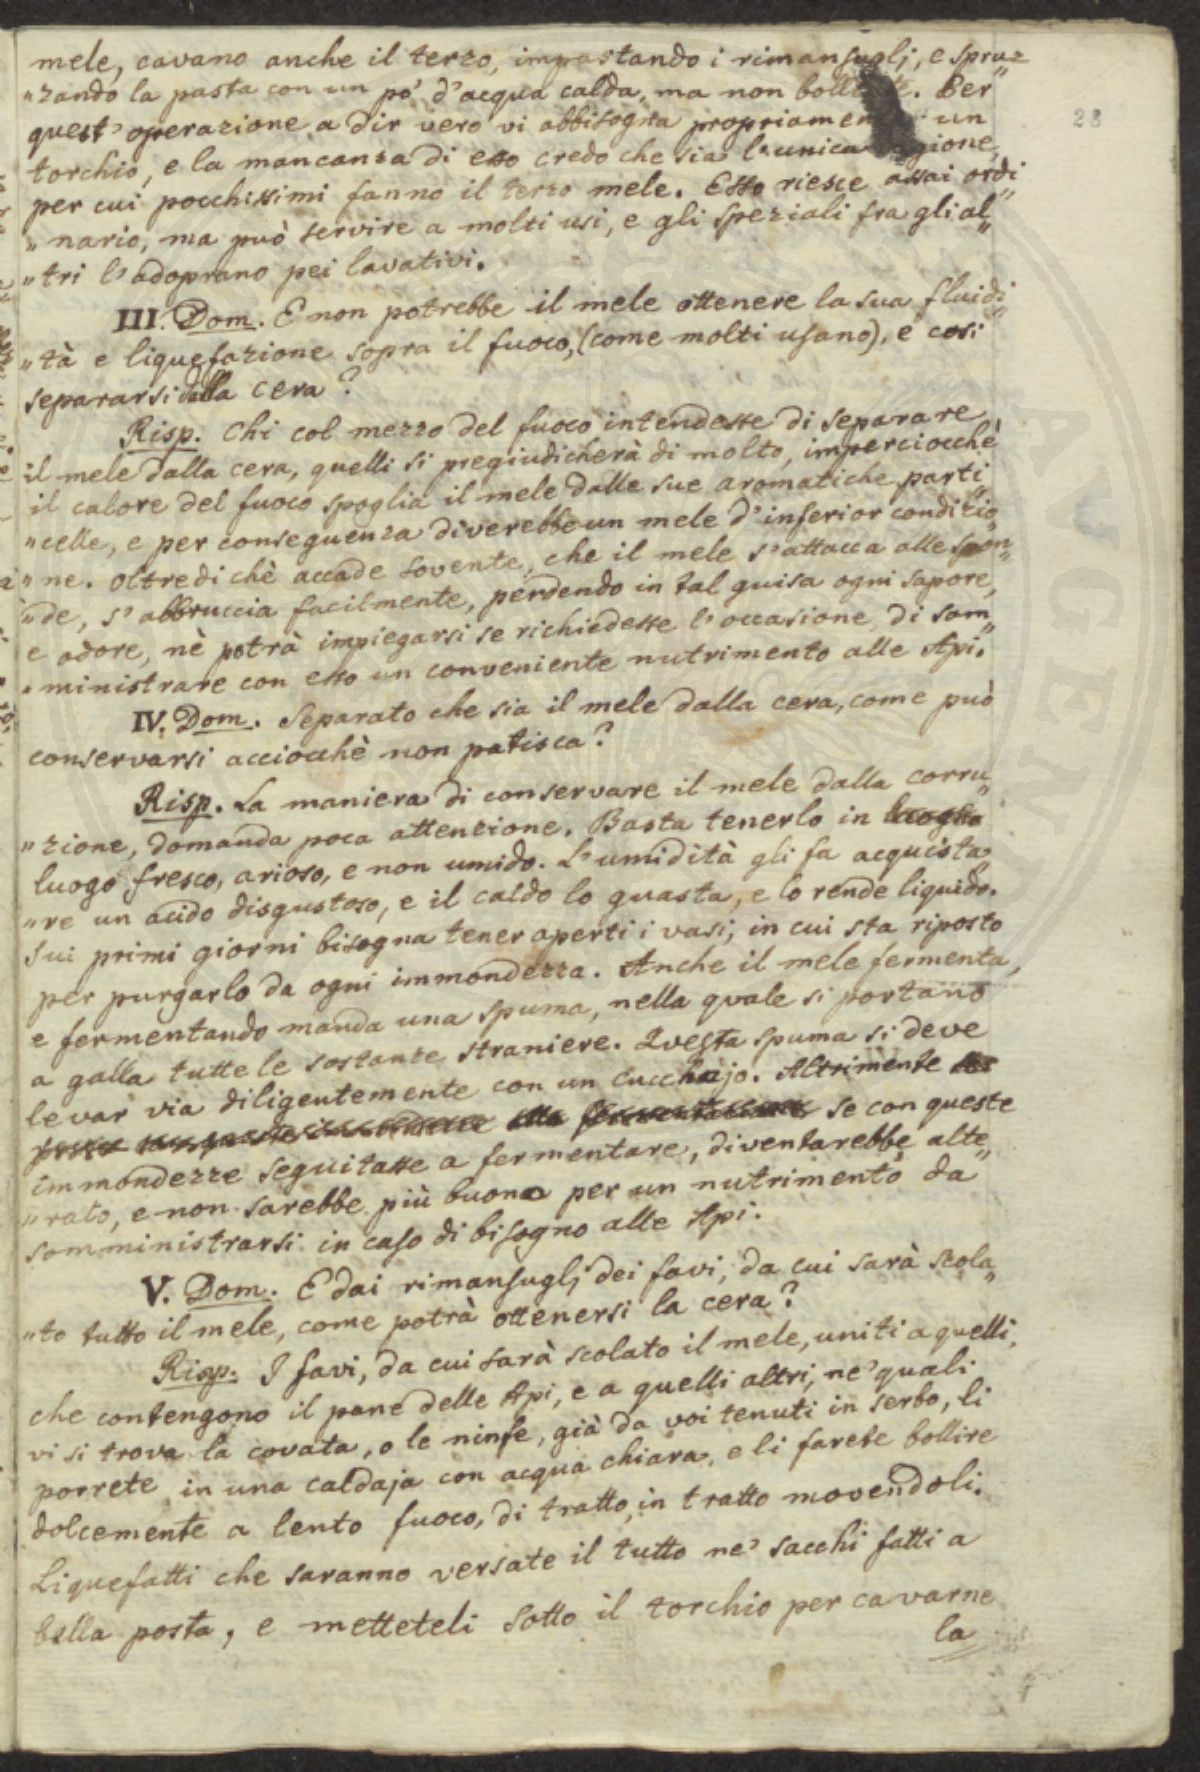 28
mele, cavano anche il terzo, impastando i rimansuglj, e spruz„
„zando la pasta con un pò d'acqua calda, ma non . Per
quest'operazione a dir vero vi abbisogna propriamente un
torchio, e la mancanza di esso credo che sia l'unica
per cui pocchissimi fanno il terzo mele. Esso riesce assai ordi„
„nario, ma può servire a molti usi, e gli speziali fra gli al„
„tri l'adoprano pei lavativi.
III. Dom. E non potrebbe il mele ottenere la sua fluidi„
„tà e liquefazione sopra il fuoco, (come molti usano), e così
separarsi dalla cera?
Risp. Chi col mezzo del fuoco intendesse di separare
il mele dalla cera, quelli si pregiudicherà di molto, imperciocchè
il calore del fuoco spoglia il mele dalle sue aromatiche parti„
„celle, e per conseguenza diverebbe un mele d'inferior condizio„
„ne. Oltre di chè accade sovente, che il mele s'attacca alle spon„
„de, s'abbruccia facilmente, perdendo in tal guisa ogni sapore,
e odore, nè potrà impiegarsi se richiedesse l'occasione di som„
„ministrare con esso un conveniente nutrimento alle Api.
IV. Dom. Separato che sia il mele dalla cera, come può
conservarsi acciocchè non patisca?
Risp. La maniera di conservare il mele dalla corru„
„zione, domanda poca attenzione. Basta tenerlo in
luogo fresco, arioso, e non umido. L'umidità gli fa acquista„
„re un acido disgustoso, e il caldo lo guasta, e lo rende liquido.
Sui primi giorni bisogna tener aperti i vasi, in cui sta riposto
per purgarlo da ogni immondezza. Anche il mele fermenta,
e fermentando manda una spuma, nella quale si portano
a galla tutte le sostanze straniere. Questa spuma si deve
levar via diligentemente con un cucchajo. Altrimente
se con queste
immondezze seguitasse a fermentare, diventarebbe alte„
„rato, e non sarebbe più buono per un nutrimento da
somministrarsi in caso di bisogno alle Api.
V. Dom. E dai rimansuglj dei favi, da cui sarà scola„
„to tutto il mele, come potrà ottenersi la cera?
Risp. I favi, da cui sarà scolato il mele, uniti a quelli,
che contengono il pane delle Api, e a quelli altri, ne' quali
vi si trova la covata, o le ninfe, già da voi tenuti in serbo, li
porrete in una caldaja con acqua chiara, e li farete bollire
dolcemente a lento fuoco, di tratto, in tratto movendoli.
Liquefatti che saranno versate il tutto ne' sacchi fatti a
bella posta, e metteteli sotto il torchio per cavarne
la